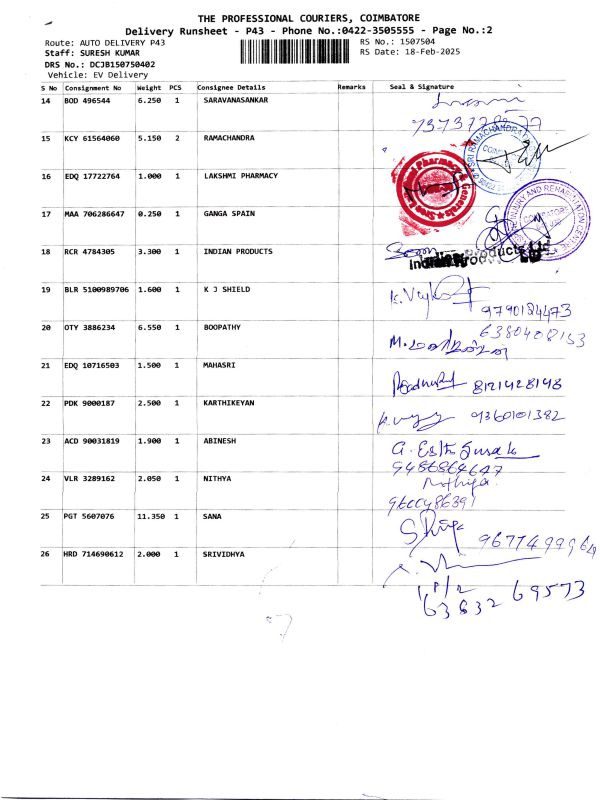 THE PROFESSIONAL COURIERS, COIMBATORE
Delivery Runsheet - P43 - Phone No.:0422-3505555 - Page No.:2
Route: AUTO DELIVERY P43
RS No.: 1507504
Staff: SURESH KUMAR
RS Date: 18-Feb-2025
DRS No.: DCJB150750402
Vehicle: EV Delivery
S No Consignment No Weight PCS Consignee Details Remarks Seal & Signature
14 BOD 496544 6.250 1 SARAVANASANKAR
15 KCY 61564060 5.150 2 RAMACHANDRA
16 EDQ 17722764 1.000 1 LAKSHMI PHARMACY
17 MAA 706286647 0.250 1 GANGA SPAIN
18 RCR 4784305 3.300 1 INDIAN PRODUCTS
19 BLR 5100989706 1.600 1 K J SHIELD
9790124473
20 OTY 3886234 6.550 1 BOOPATHY
6380408153
21 EDQ 10716503 1.500 1 MAHASRI 8121428148
22 PDK 9000187 2.500 1 KARTHIKEYAN 9360101382
23 ACD 90031819 1.900 1 ABINESH
9486864647
24 VLR 3289162 2.050 1 NITHYA Nithya
25 PGT 5607076 11.350 1 SANA
9677499964
26 HRD 714690612 2.000 1 SRIVIDHYA
63832 69573